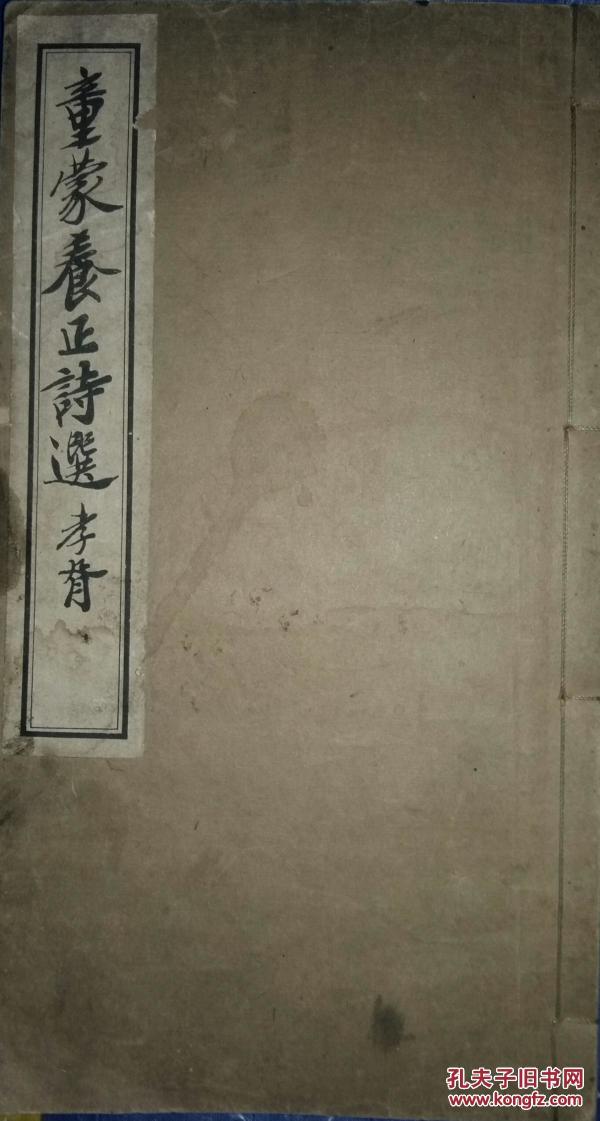 童蒙養正詩選 孝胥
孔夫子旧书网
www.kongfz.com